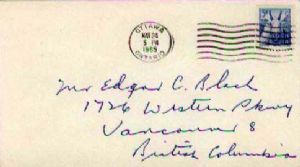 OTTAWA
5 PM
1965
ONTARIO
Mr Edgar C. Black
1726 Western Pkwy
Vancouver 8
British Columbia